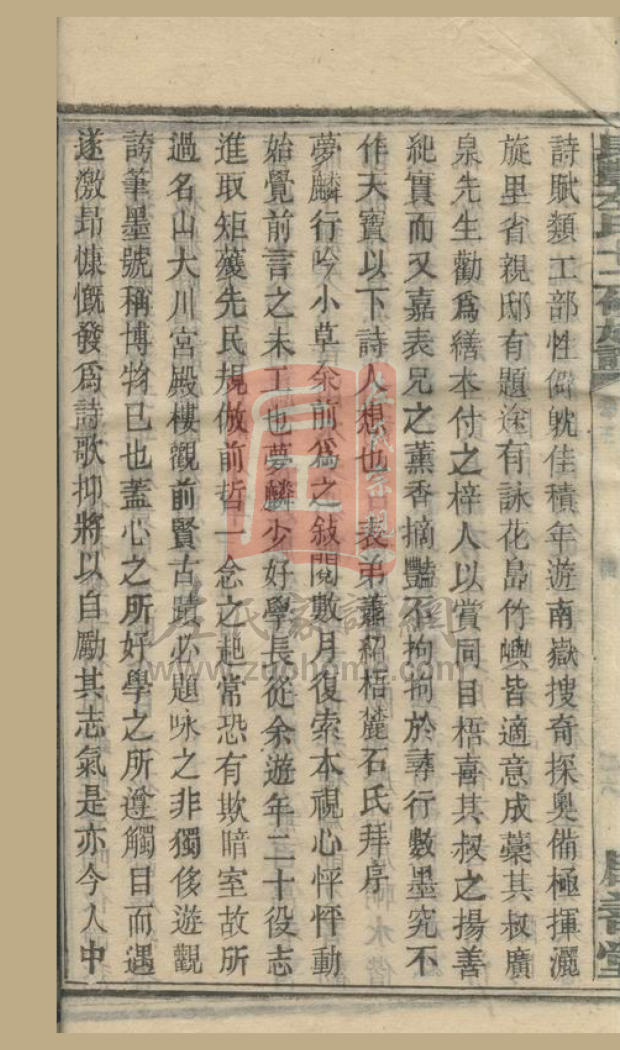 詩賦類工部性僻躭佳積年遊南嶽搜奇探奧備極揮灑
旋里省親邸有題途有詠花島竹嶼皆適意成藁其叔廣
泉先生勸爲繕本付之梓人以賞同目梧喜其叔之揚善
紀實而又嘉表兄之薰香摘豔不拘拘於尋行數墨究不
作天寶以下詩人想也 表弟蕭紹梧麓石氏拜序
夢麟行吟小草余前爲之敍閱數月復索本視心怦怦動
始覺前言之未工也夢麟少好學長從余遊年二十役志
進取矩矱先民規倣前哲一念之
常恐有欺暗室故所
過名山大川宮殿樓觀前賢古蹟必題咏之非獨侈遊觀
誇筆墨號稱博物已也蓋心之所好學之所遵觸目而遇
遂激昂慷慨發爲詩歌抑將以自勵其志氣是亦今人中
左氏家譜網
www.zuohome.com
善堂